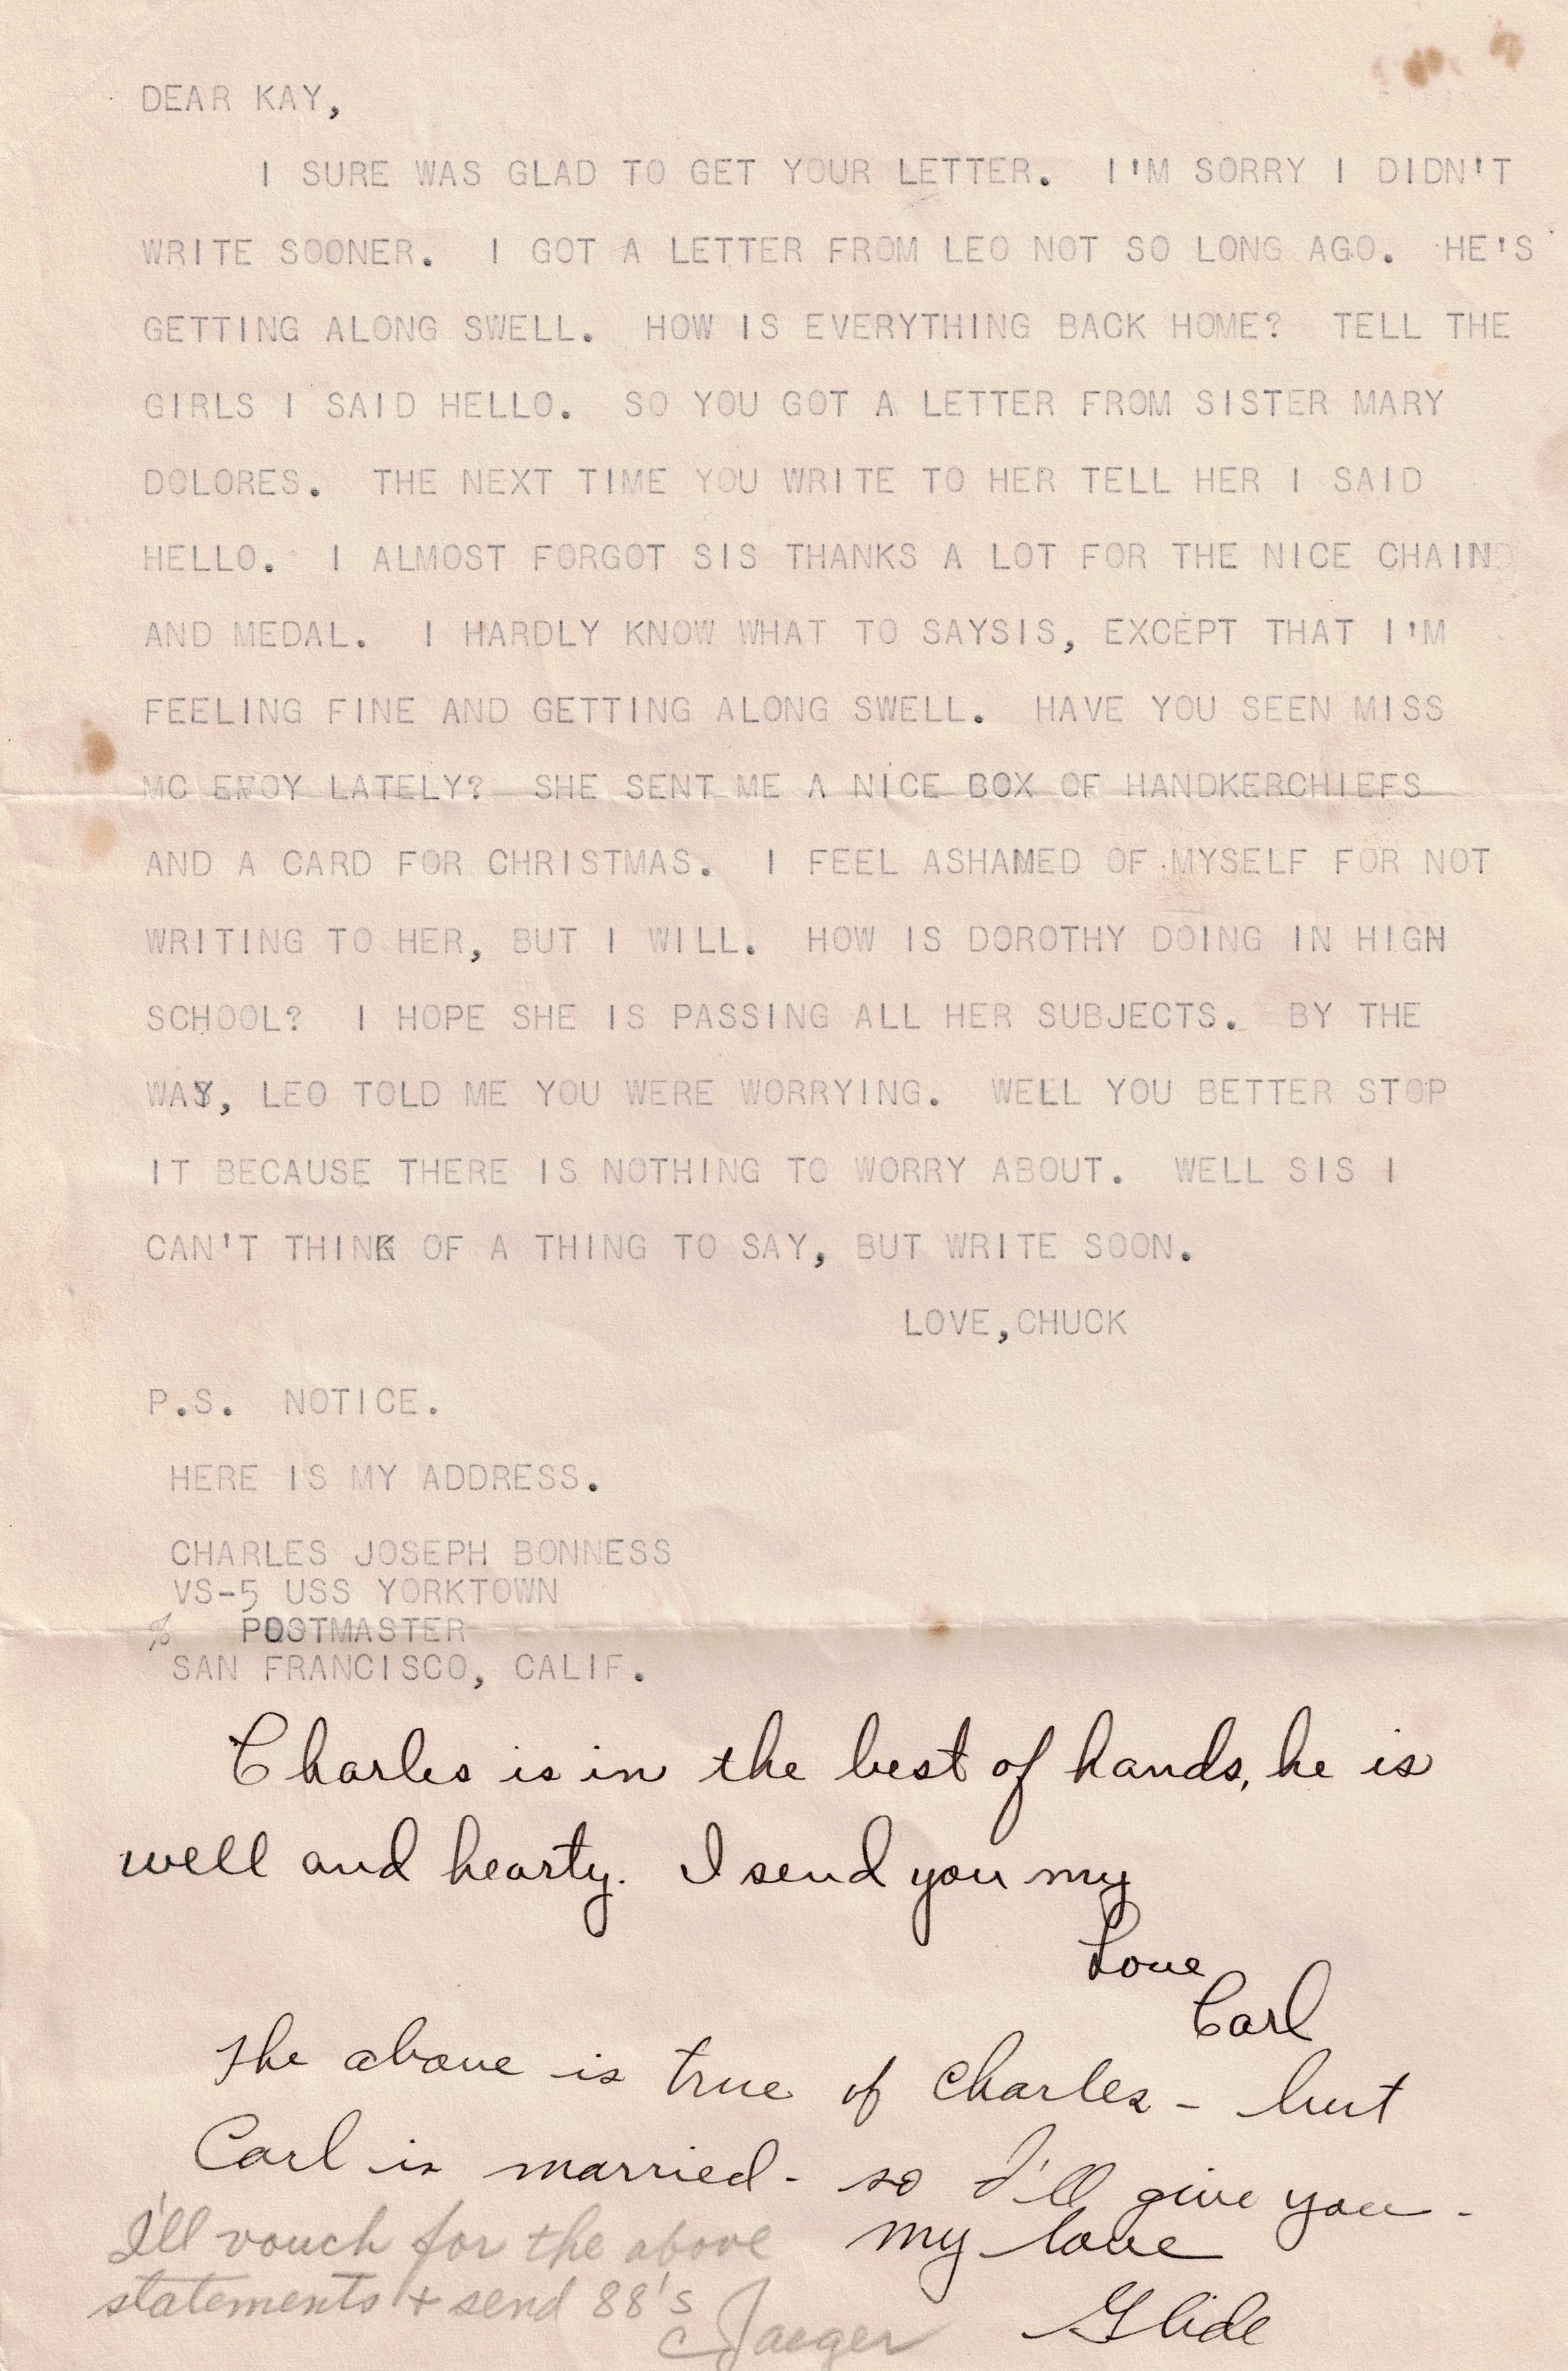 DEAR KAY,
I SURE WAS GLAD TO GET YOUR LETTER. I'M SORRY I DIDN'T
WRITE SOONER. I GOT A LETTER FROM LEO NOT SO LONG AGO. HE'S
GETTING ALONG SWELL. HOW IS EVERYTHING BACK HOME? TELL THE
GIRLS I SAID HELLO. SO YOU GOT A LETTER FROM SISTER MARY
DOLORES. THE NEXT TIME YOU WRITE TO HER TELL HER I SAID
HELLO. I ALMOST FORGOT SIS THANKS A LOT FOR THE NICE CHAIN
AND MEDAL. I HARDLY KNOW WHAT TO SAYSIS, EXCEPT THAT I'M
FEELING FINE AND GETTING ALONG SWELL. HAVE YOU SEEN MISS
MC EVOY LATELY? SHE SENT ME A NICE BOX OF HANDKERCHIEFS
AND A CARD FOR CHRISTMAS. I FEEL ASHAMED OF MYSELF FOR NOT
WRITING TO HER, BUT I WILL. HOW IS DOROTHY DOING IN HIGH
SCHOOL? I HOPE SHE IS PASSING ALL HER SUBJECTS. BY THE
WAY, LEO TOLD ME YOU WERE WORRYING. WELL YOU BETTER STOP
IT BECAUSE THERE IS NOTHING TO WORRY ABOUT. WELL SIS I
CAN'T THINK OF A THING TO SAY, BUT WRITE SOON.
LOVE,CHUCK
P.S. NOTICE.
HERE IS MY ADDRESS.
CHARLES JOSEPH BONNESS
VS-5 USS YORKTOWN
% POSTMASTER
SAN FRANCISCO, CALIF.
Charles is in the best of hands, he is
well and hearty. I send you my
Love
Carl
The above is true of Charles - but
Carl is married - so I'll give you -
my love
Glide
I'll vouch for the above
statements + send 88's
Jaeger